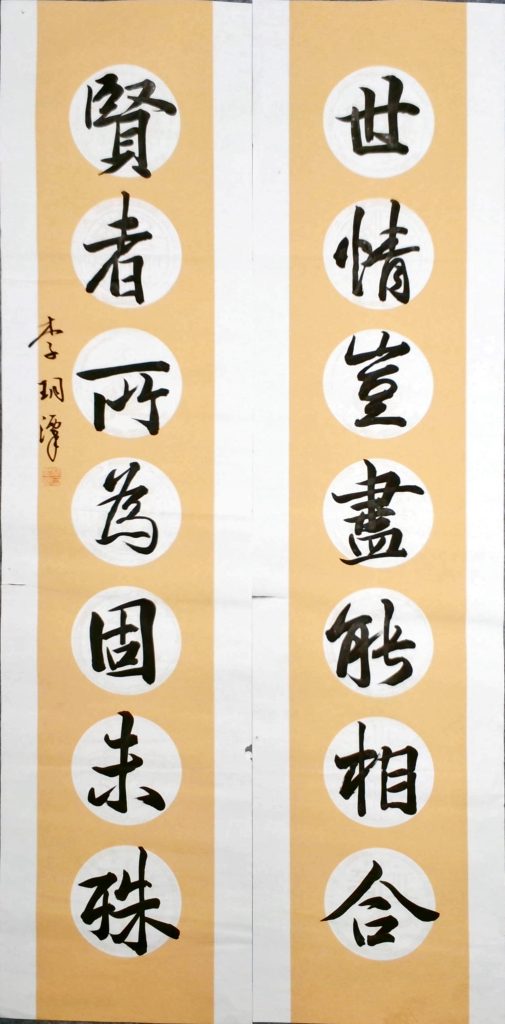 世情豈盡能相合
賢者所為固未殊
李玥澤